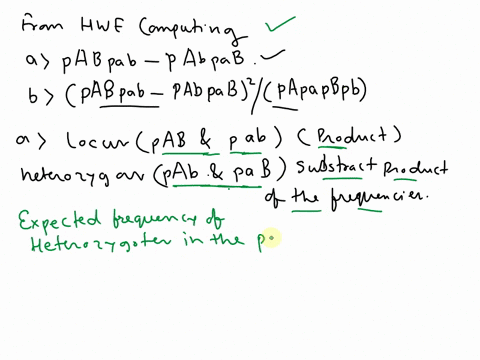 From HWE Computing ✓
a> pABpab - pAbpaB. ✓
b> (pABpab - pAbpaB)²/(pApapBpb)
a> locus (pAB & pab) (Product)
heterozygous (pAb & paB) substract product
of the frequencies.
Expected frequency of
Heterozygotes in the p